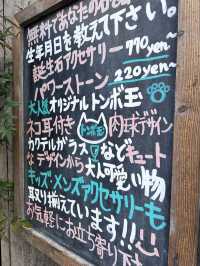 無料であなたの
生年月日を教えて下さい。
誕生石アクセサリー 770yen~
パワーストーン 220yen~
大人気オリジナルトンボ玉
ネコ耳付き トンボ玉 肉球デザイン
カクテルグラスなどキュート
なデザインから大人可愛い物
キッズ・メンズアクセサリーも
取り揃えています!!
お気軽にお立ち寄り下